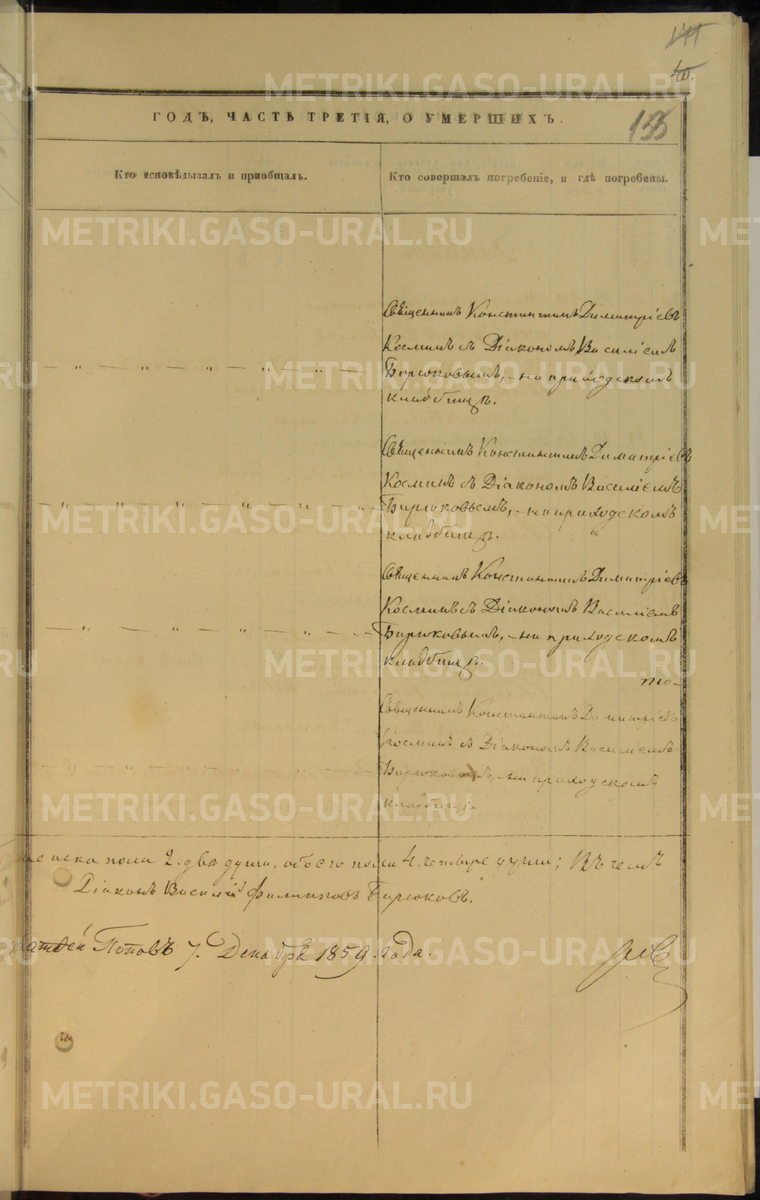 40.
155
ГОДЪ, ЧАСТЬ ТРЕТІЯ, О УМЕРШИХЪ.
Кто исповѣдывалъ и пріобщалъ.
Кто совершалъ погребеніе, и гдѣ погребены.
Священникъ Константинъ Димитріевъ
Косминъ съ Діакономъ Василіемъ
— „ — „ — „ — „ — „ —
Бирюковымъ, — на приходскомъ
кладбищѣ.
Священникъ Константинъ Димитріевъ
Косминъ съ Діакономъ Василіемъ
Бирюковымъ, — на приходскомъ
кладбищѣ.
Священникъ Константинъ Димитріевъ
Косминъ съ Діакономъ Василіемъ
Бирюковымъ, — на приходскомъ
кладбищѣ.
Священникъ Константинъ Димитріевъ
Косминъ съ Діакономъ Василіемъ
Бирюковымъ, — на приходскомъ
кладбищѣ.
пола 2. двѣ души, обоего пола 4. четыре души; Въ чемъ
Діаконъ Василій Филиповъ Бирюковъ.
Поповъ 7. Декабря 1859 года.
METRIKI.GASO-URAL.RU